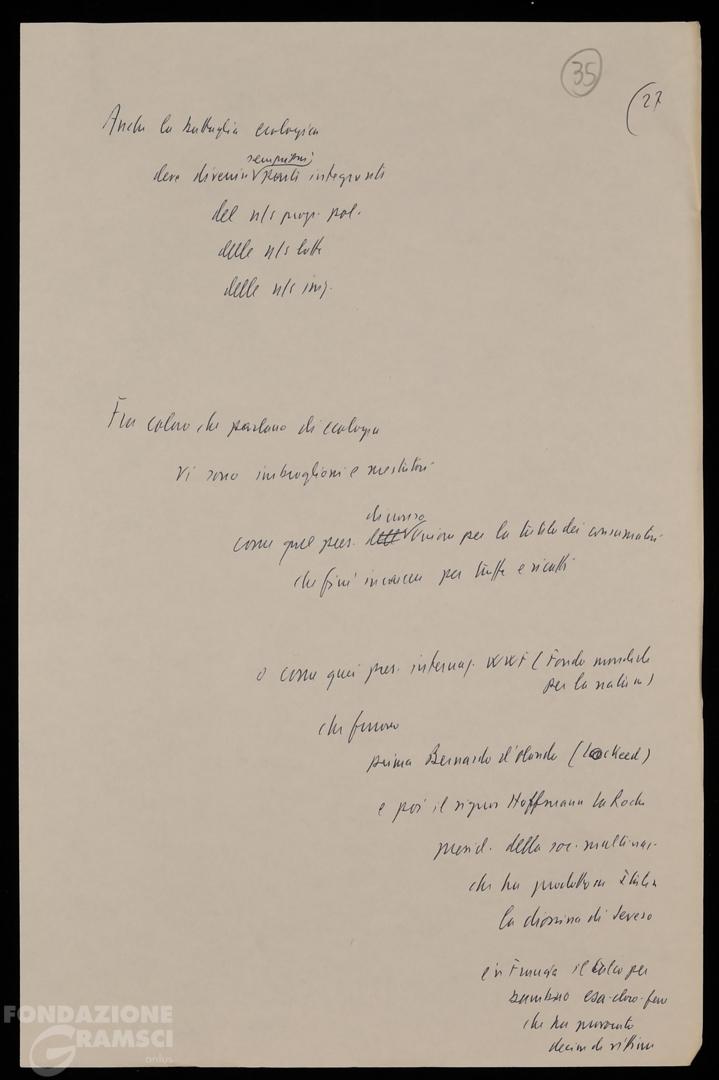 35
(27
Anche la battaglia ecologica
sempre più
deve divenire √ parte integrante
del n/s progr. pol.
delle n/s lotte
delle n/s
Fra coloro che parlano di ecologia
vi sono imbroglioni e mestatori
di una
come quel pres. √ unione per la tutela dei consumatori
che finì in carcere per truffe e ricatti
o come quei pres. internaz. WWF (Fondo mondiale
per la natura)
che furono
prima Bernardo d'Olanda (Lockeed)
e poi il signor Hoffmann La Roche
presid. della soc. multinaz.
che ha prodotto in Italia
la diossina di Seveso
e in Francia il talco per
bambino esa-cloro-fene
che ha provocato
decine di vittime
FONDAZIONE
GRAMSCI
onlus